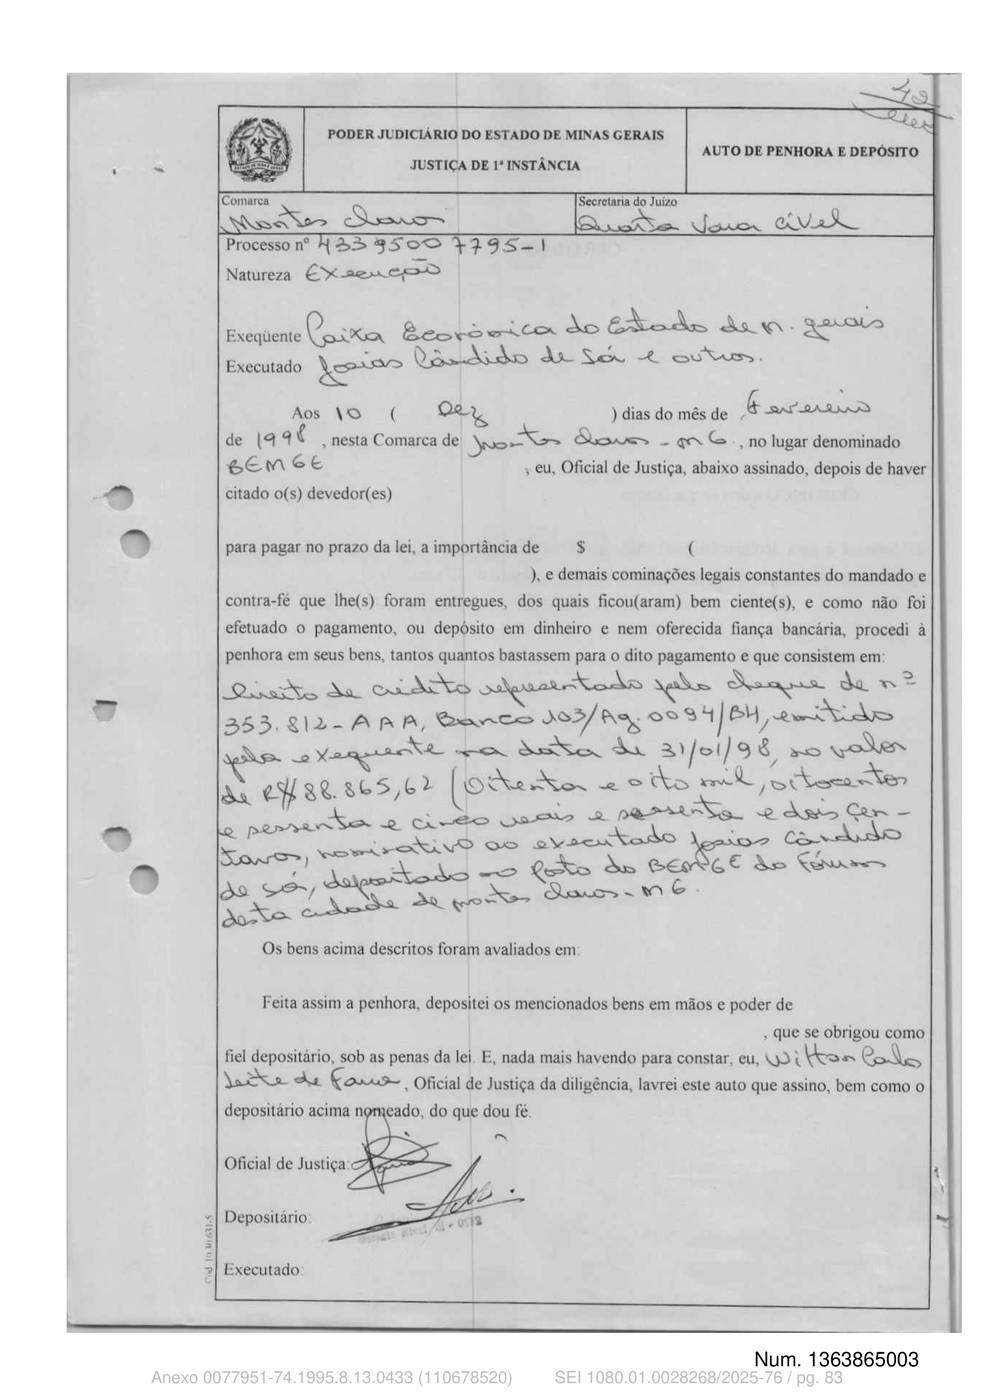 42
PODER JUDICIÁRIO DO ESTADO DE MINAS GERAIS
JUSTIÇA DE 1ª INSTÂNCIA
AUTO DE PENHORA E DEPÓSITO
Comarca
Montes Claros
Secretaria do Juízo
Quarta Vara Cível
Processo nº 433 9500 7795-1
Natureza Execução
Exeqüente Caixa Econômica do Estado de M. Gerais
Executado Josias Cândido de Sá e outros.
Aos 10 ( Dez ) dias do mês de Fevereiro
de 1998, nesta Comarca de Montes Claros - MG, no lugar denominado
BEMGE , eu, Oficial de Justiça, abaixo assinado, depois de haver
citado o(s) devedor(es)
para pagar no prazo da lei, a importância de $ (
), e demais cominações legais constantes do mandado e
contra-fé que lhe(s) foram entregues, dos quais ficou(aram) bem ciente(s), e como não foi
efetuado o pagamento, ou depósito em dinheiro e nem oferecida fiança bancária, procedi à
penhora em seus bens, tantos quantos bastassem para o dito pagamento e que consistem em:
Direito de crédito representado pelo cheque de nº
353.812-AAA, Banco 103/Ag. 0094/BH, emitido
pela exequente na data de 31/01/98, no valor
de R$ 88.865,62 (Oitenta e oito mil, oitocentos
e sessenta e cinco reais e sessenta e dois cen-
tavos, nominativo ao executado Josias Cândido
de Sá, depositado no Posto do BEMGE do Fórum
desta cidade de Montes Claros - MG.
Os bens acima descritos foram avaliados em:
Feita assim a penhora, depositei os mencionados bens em mãos e poder de
, que se obrigou como
fiel depositário, sob as penas da lei. E, nada mais havendo para constar, eu, Wilton Carlo
Leite de Faria, Oficial de Justiça da diligência, lavrei este auto que assino, bem como o
depositário acima nomeado, do que dou fé.
Oficial de Justiça:
Depositário:
Executado:
Num. 1363865003
Anexo 0077951-74.1995.8.13.0433 (110678520) SEI 1080.01.0028268/2025-76 / pg. 83